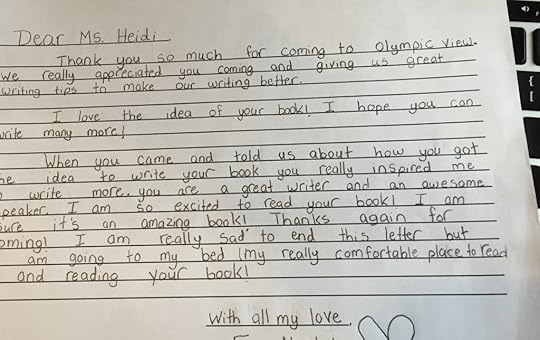 Dear Ms. Heidi
Thank you so much for coming to Olympic View.
we really appreciated you coming and giving us great
writing tips to make our writing better.
I love the idea of your book! I hope you can
write many more!
When you came and told us about how you got
he idea to write your book you really inspired me
o write more. you are a great writer and an awesome
peaker. I am so excited to read your book! I am
ure it's an amazing book! Thanks again for
oming! I am really sad to end this letter but
am going to my bed (my really comfortable place to read
and reading your book!
With all my love,